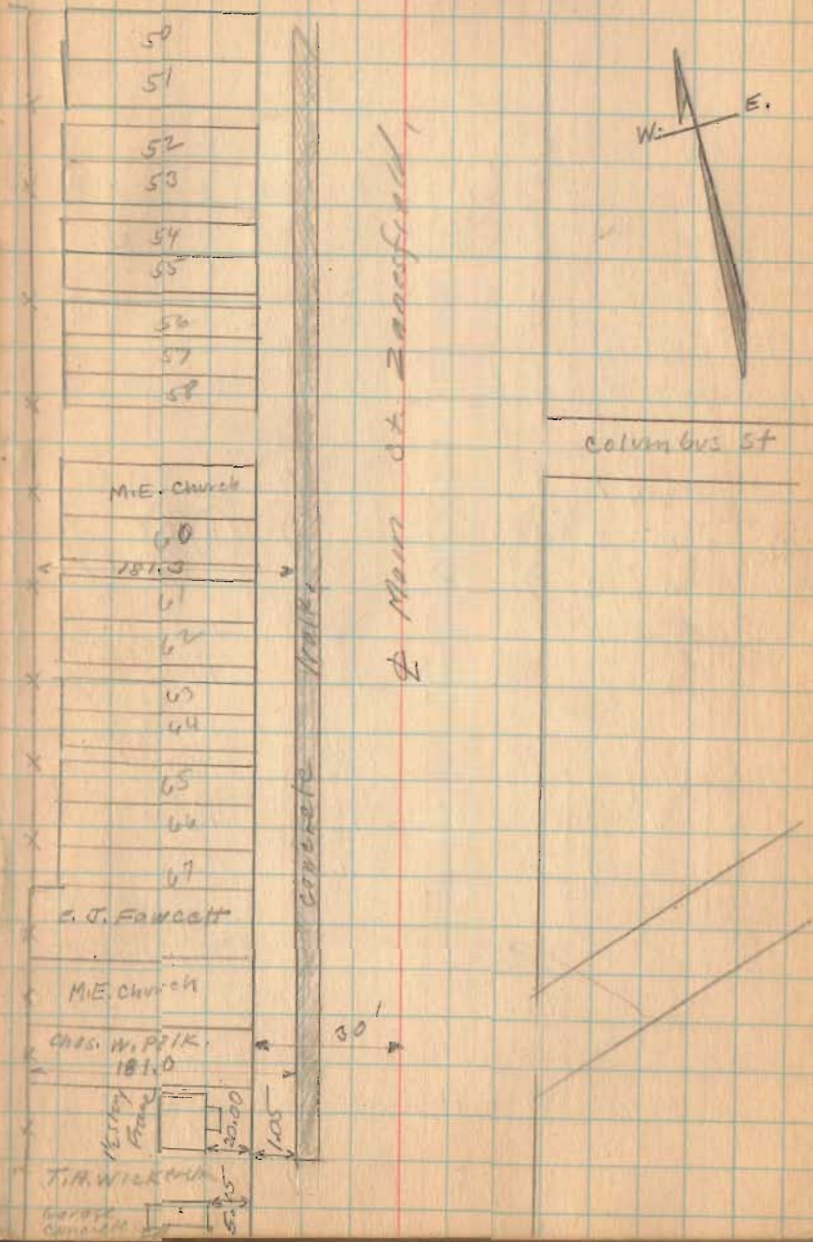 50
51
52
53
54
55
56
57
58
M.E. Church
60
181.3
61
62
63
64
65
66
67
E. J. Fawcett
M.E. Church
Chas. W. Polk.
181.0
1½ Story
Frame
20.00
1.05
30'
T.A. Wickersham
5.45
Garage
Concrete
Concrete Walk
℄ Main St. Zanesfield,
W.
E.
Columbus St